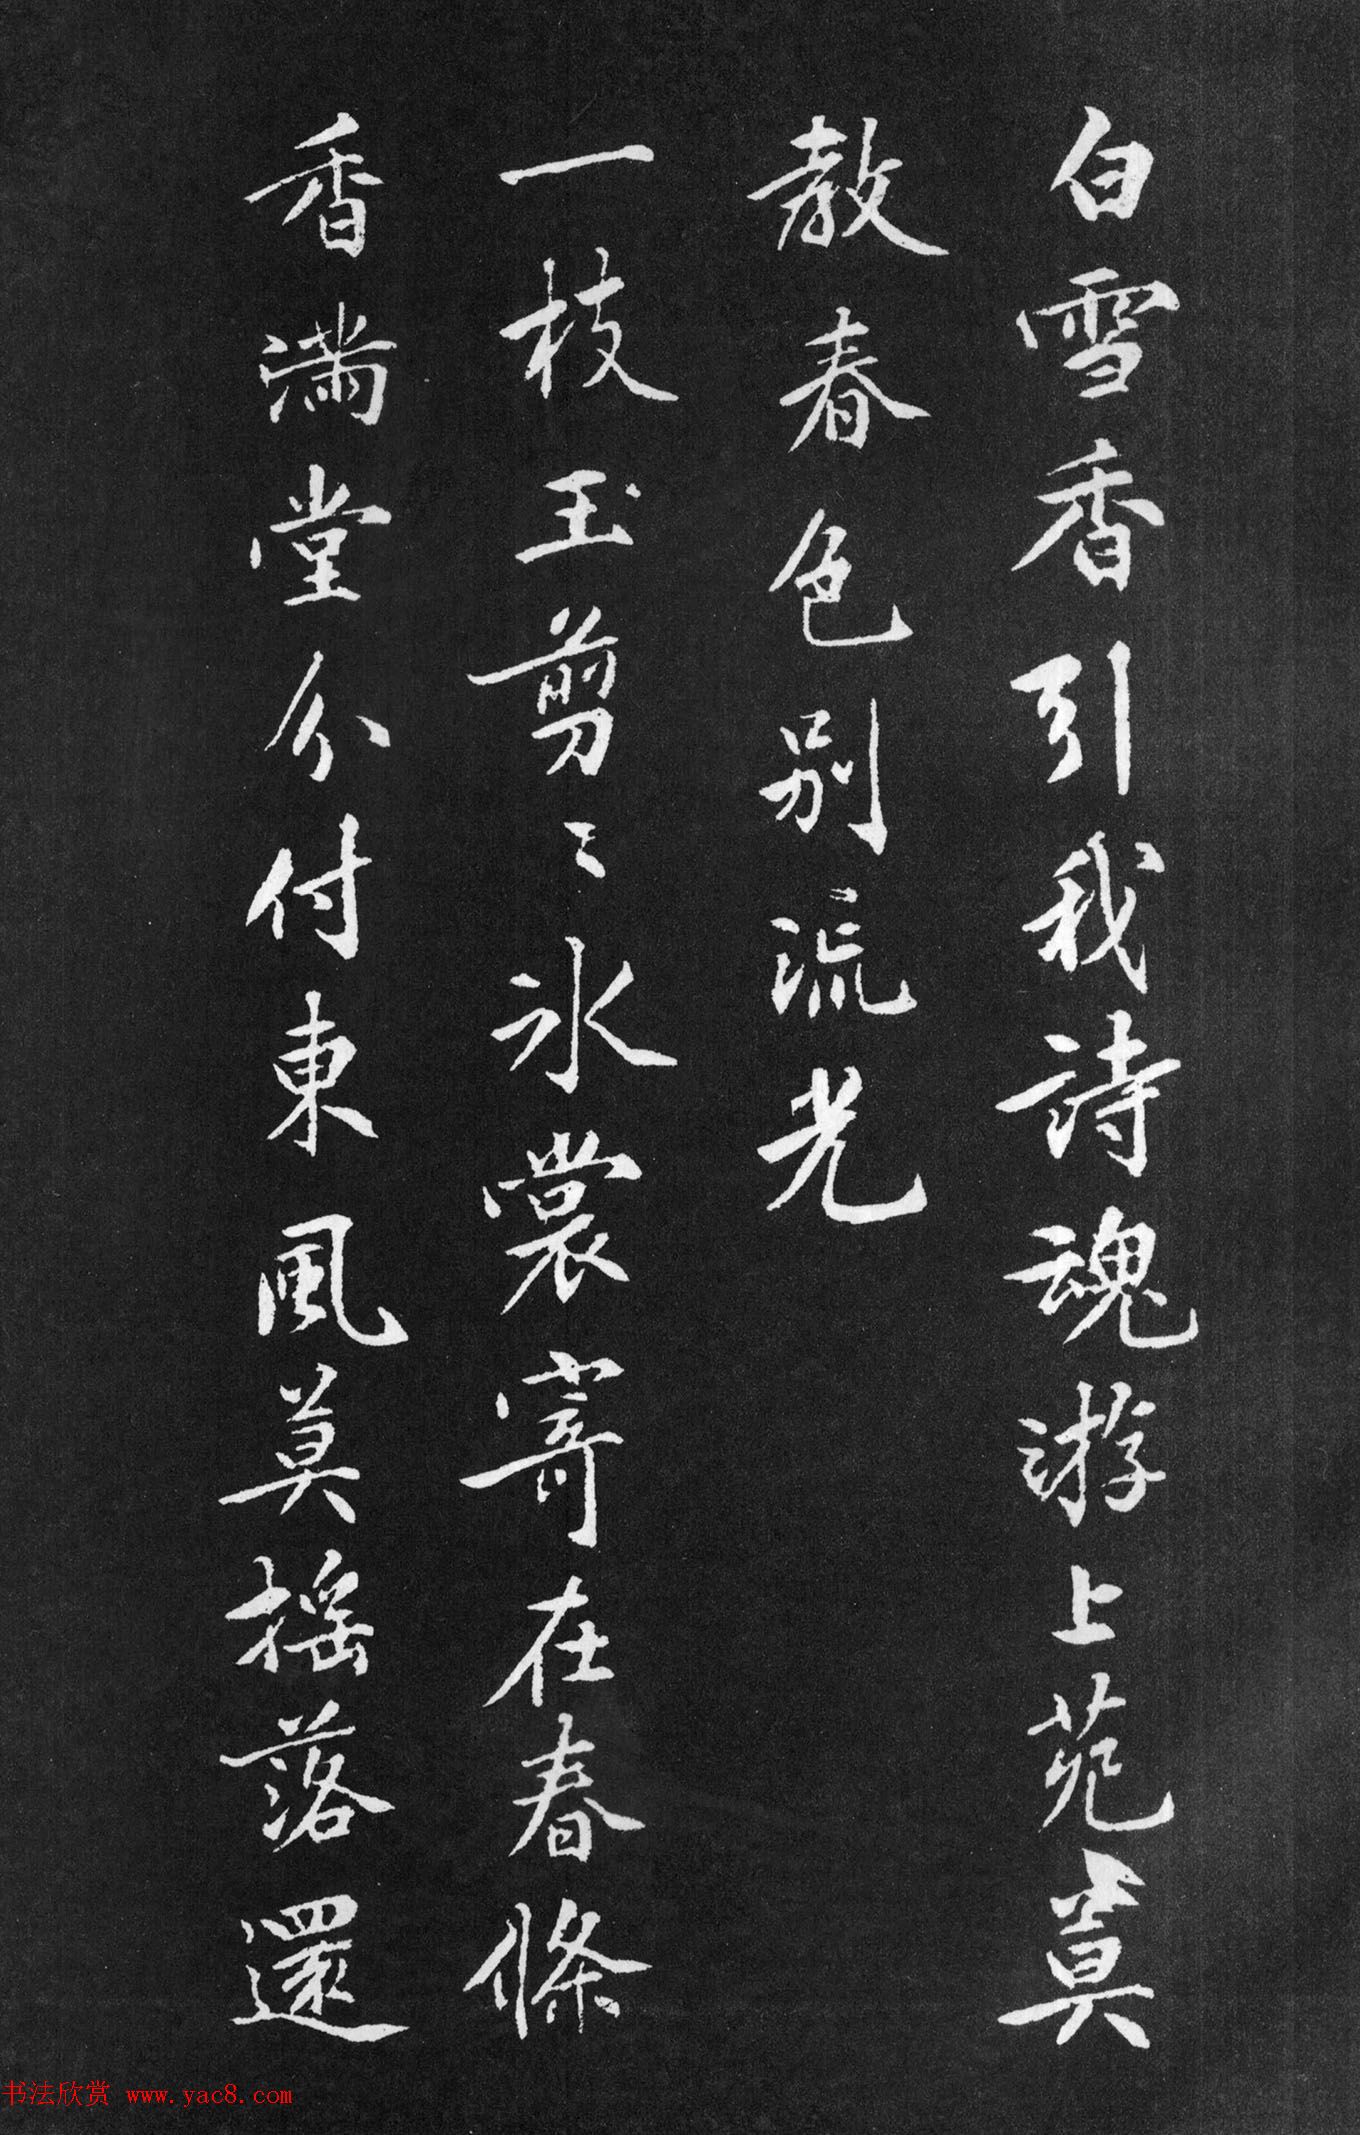 白雪香引我詩魂游上苑莫
教春色別流光
一枝玉剪々氷裳寄在春條
香滿堂分付東風莫摇落還
书法欣赏 www.yac8.com